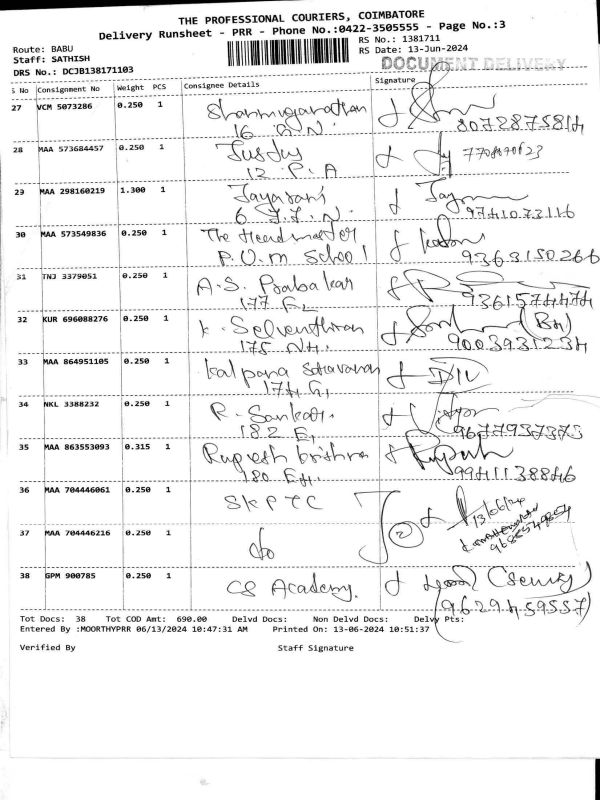 THE PROFESSIONAL COURIERS, COIMBATORE
Delivery Runsheet - PRR - Phone No.:0422-3505555 - Page No.:3
Route: BABU
RS No.: 1381711
Staff: SATHISH
RS Date: 13-Jun-2024
DRS No.: DCJB138171103
DOCUMENT DELIVERY
S No Consignment No Weight PCS Consignee Details Signature
27 VCM 5073286 0.250 1
16
8072875814
28 MAA 573684457 0.250 1
12. P. A
29 MAA 298160219 1.300 1 Jayarani
6
9741073116
30 MAA 573549836 0.250 1 The Headmaster
P.U.M School
9363150266
31 TNJ 3379051 0.250 1 A.S. Prabakar
177 E,
9361574474
32 KUR 696088276 0.250 1 K. Selventhiran
175 NH.
9003931234
33 MAA 864951105 0.250 1 Kalpana Saravanan
174 G,
34 NKL 3388232 0.250 1 R. Sankar.
182 E,
9677937373
35 MAA 863553093 0.315 1 Rupesh krithna
180 EH.
9941138846
36 MAA 704446061 0.250 1 SKPTC
13/06/24
37 MAA 704446216 0.250 1 do 2
38 GPM 900785 0.250 1 CS Academy.
(9629459557)
Tot Docs: 38 Tot COD Amt: 690.00 Delvd Docs: Non Delvd Docs: Delvy Pts:
Entered By :MOORTHYPRR 06/13/2024 10:47:31 AM Printed On: 13-06-2024 10:51:37
Verified By Staff Signature